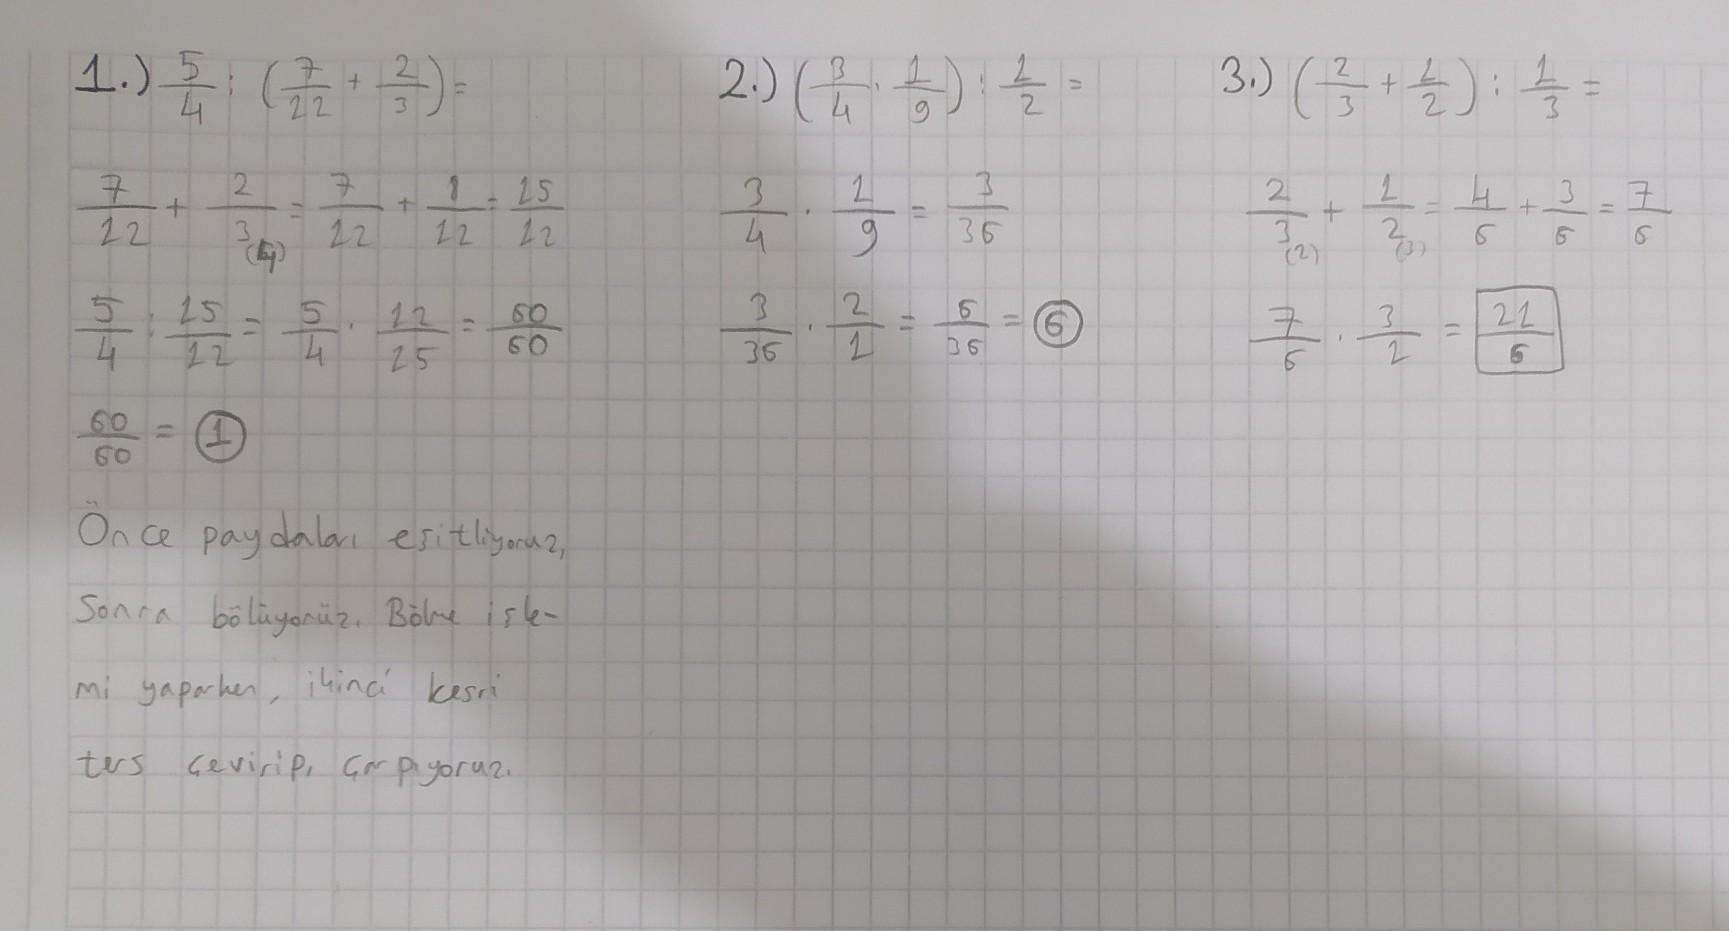 1.) 5/4 : (7/12 + 2/3) =
7/12 + 2/3 (4) = 7/12 + 8/12 = 15/12
5/4 : 15/12 = 5/4 · 12/15 = 60/60
60/60 = 1
Önce paydaları eşitliyoruz,
Sonra bölüyorüz. Bölme işle-
mi yaparken, ikinci kesri
ters çevirip, çarpıyoruz.
2.) (3/4 · 1/9) : 1/2 =
3/4 · 1/9 = 3/36
3/36 · 2/1 = 6/36 = 6
3.) (2/3 + 1/2) : 1/3 =
2/3 (2) + 1/2 (3) = 4/6 + 3/6 = 7/6
7/6 · 3/1 = 21/6